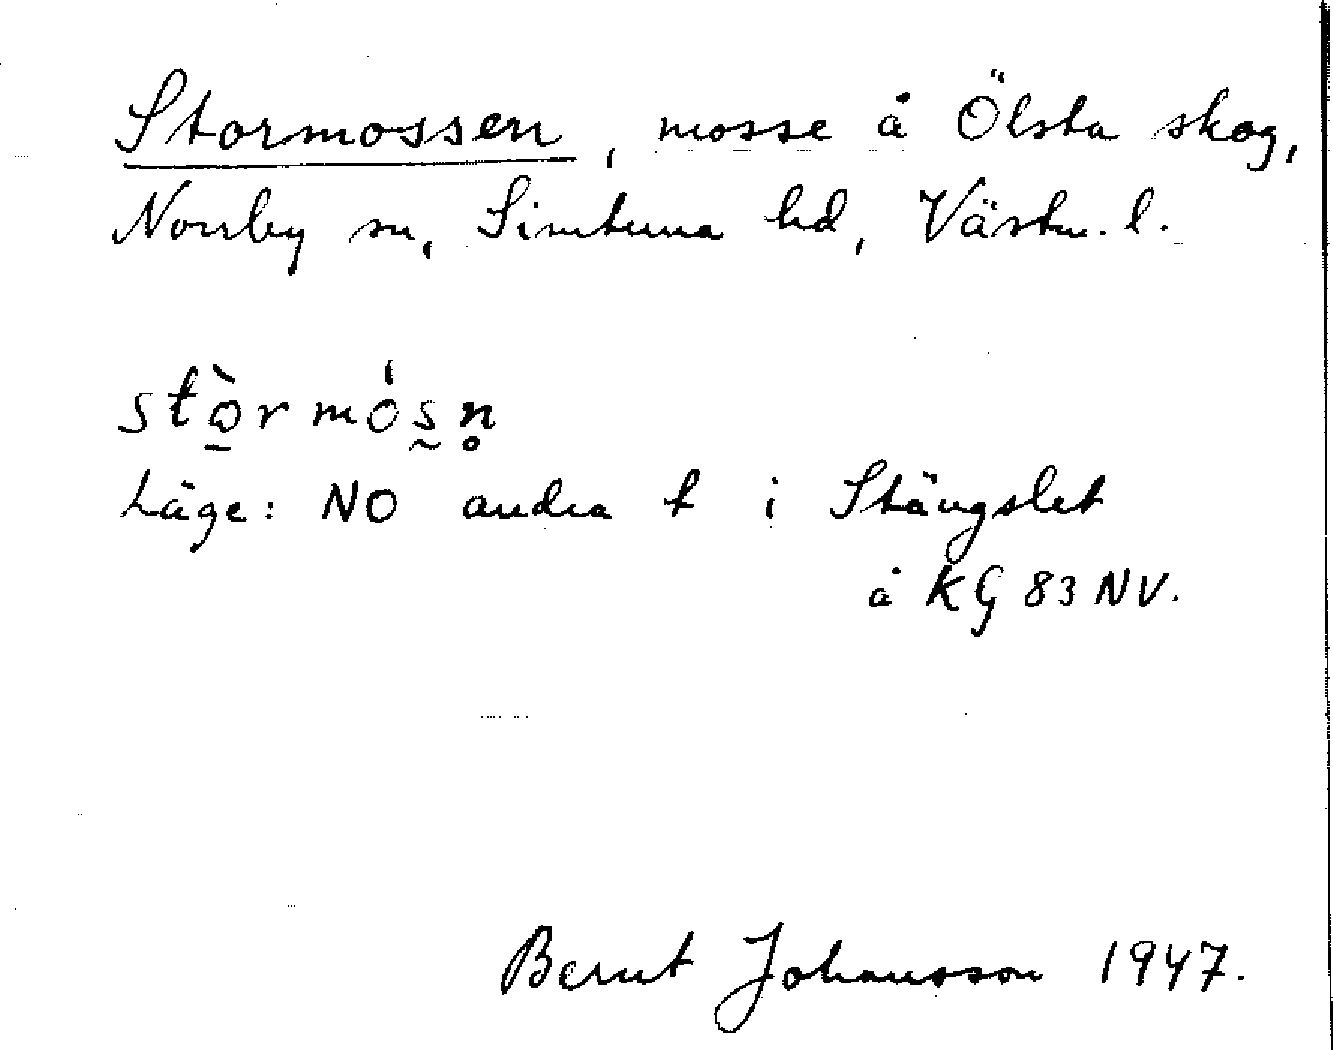 Stormossen, mosse å Ölsta skog,
Norrby sn, Simtuna hd, Västm. l.
stò̠rmósn̥
Läge: NO andra t i Stängslet
å KG 83 NV.
Bernt Johansson 1947.